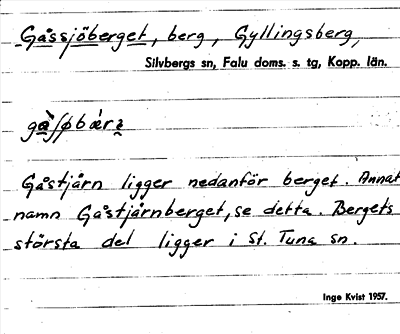 Gåssjöberget, berg, Gyllingsberg,
Silvbergs sn, Falu doms. s. tg, Kopp. län.
gå̀ʃøbæ̀rə
Gåstjärn ligger nedanför berget. Annat
namn Gåstjärnberget, se detta. Bergets
största del ligger i St. Tuna sn.
Inge Kvist 1957.